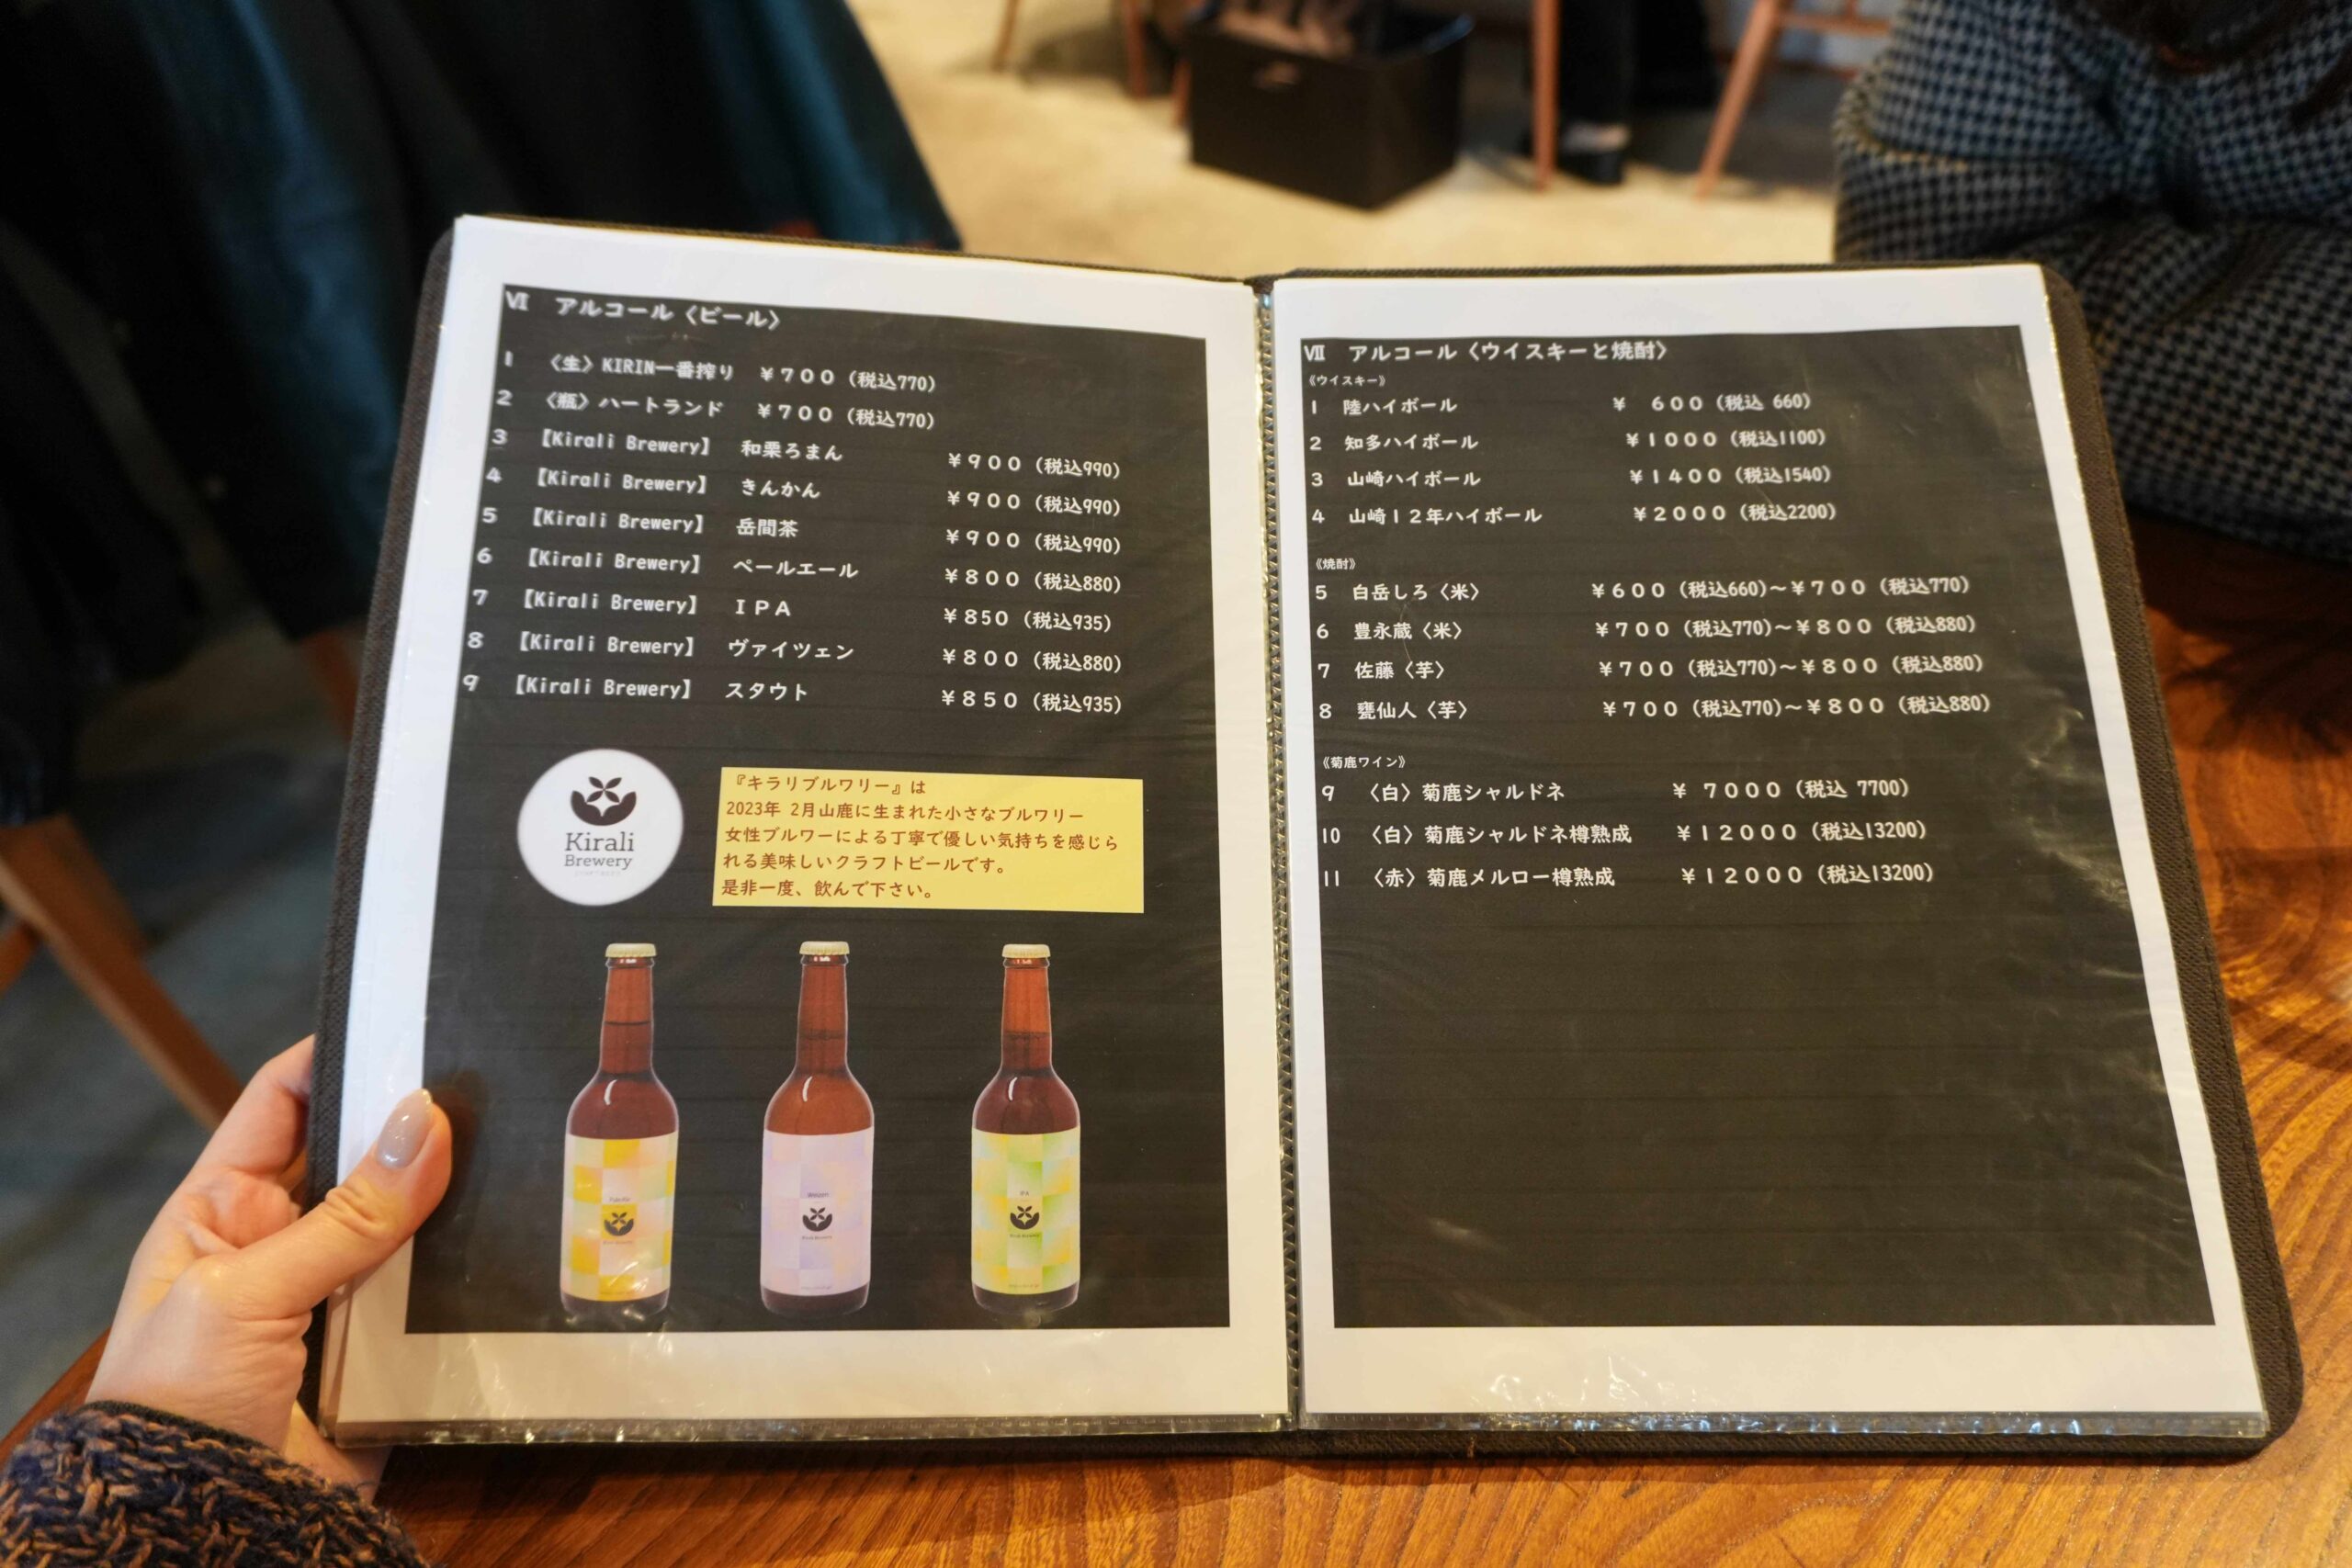 Ⅵ アルコール〈ビール〉
1 〈生〉KIRIN一番搾り ￥７００（税込770）
2 〈瓶〉ハートランド ￥７００（税込770）
3 【Kirali Brewery】 和栗ろまん ￥９００（税込990）
4 【Kirali Brewery】 きんかん ￥９００（税込990）
5 【Kirali Brewery】 岳間茶 ￥９００（税込990）
6 【Kirali Brewery】 ペールエール ￥８００（税込880）
7 【Kirali Brewery】 ＩＰＡ ￥850（税込935）
8 【Kirali Brewery】 ヴァイツェン ￥８００（税込880）
9 【Kirali Brewery】 スタウト ￥８５０（税込935）
Kirali
Brewery
『キラリブルワリー』は
2023年 2月山鹿に生まれた小さなブルワリー
女性ブルワーによる丁寧で優しい気持ちを感じら
れる美味しいクラフトビールです。
是非一度、飲んで下さい。
IPA
Ⅶ アルコール〈ウイスキーと焼酎〉
《ウイスキー》
1 陸ハイボール ￥ ６００（税込 660）
2 知多ハイボール ￥１０００（税込1100）
3 山崎ハイボール ￥１４００（税込1540）
4 山崎１２年ハイボール ￥２０００（税込2200）
《焼酎》
5 白岳しろ〈米〉 ￥６００（税込660）～￥７００（税込770）
6 豊永蔵〈米〉 ￥７００（税込770）～￥８００（税込880）
7 佐藤〈芋〉 ￥７００（税込770）～￥８００（税込880）
8 甕仙人〈芋〉 ￥７００（税込770）～￥８００（税込880）
《菊鹿ワイン》
9 〈白〉菊鹿シャルドネ ￥ ７０００（税込 7700）
10 〈白〉菊鹿シャルドネ樽熟成 ￥１２０００（税込13200）
11 〈赤〉菊鹿メルロー樽熟成 ￥１２０００（税込13200）